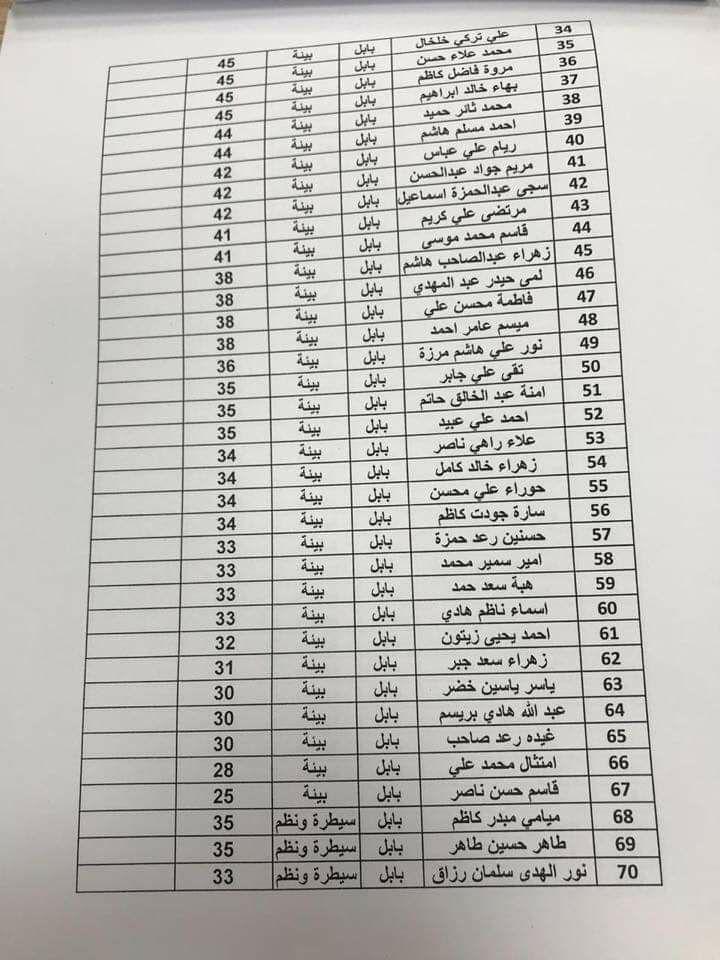 34 علي تركي خلخال بابل بيئة 45
35 محمد علاء حسن بابل بيئة 45
36 مروة فاضل كاظم بابل بيئة 45
37 بهاء خالد ابراهيم بابل بيئة 45
38 محمد ثائر حميد بابل بيئة 44
39 احمد مسلم هاشم بابل بيئة 44
40 ريام علي عباس بابل بيئة 42
41 مريم جواد عبدالحسن بابل بيئة 42
42 سجى عبدالحمزة اسماعيل بابل بيئة 42
43 مرتضى علي كريم بابل بيئة 41
44 قاسم محمد موسى بابل بيئة 41
45 زهراء عبدالصاحب هاشم بابل بيئة 38
46 لمى حيدر عبد المهدي بابل بيئة 38
47 فاطمة محسن علي بابل بيئة 38
48 ميسم عامر احمد بابل بيئة 38
49 نور علي هاشم مرزة بابل بيئة 36
50 تقى علي جابر بابل بيئة 35
51 امنة عبد الخالق حاتم بابل بيئة 35
52 احمد علي عبيد بابل بيئة 35
53 علاء راهي ناصر بابل بيئة 34
54 زهراء خالد كامل بابل بيئة 34
55 حوراء علي محسن بابل بيئة 34
56 سارة جودت كاظم بابل بيئة 34
57 حسنين رعد حمزة بابل بيئة 33
58 امير سمير محمد بابل بيئة 33
59 هبة سعد حمد بابل بيئة 33
60 اسماء ناظم هادي بابل بيئة 33
61 احمد يحيى زيتون بابل بيئة 32
62 زهراء سعد جبر بابل بيئة 31
63 ياسر ياسين خضر بابل بيئة 30
64 عبد الله هادي بريسم بابل بيئة 30
65 غيده رعد صاحب بابل بيئة 30
66 امتثال محمد علي بابل بيئة 28
67 قاسم حسن ناصر بابل بيئة 25
68 ميامي مبدر كاظم بابل سيطرة ونظم 35
69 طاهر حسين طاهر بابل سيطرة ونظم 35
70 نور الهدى سلمان رزاق بابل سيطرة ونظم 33